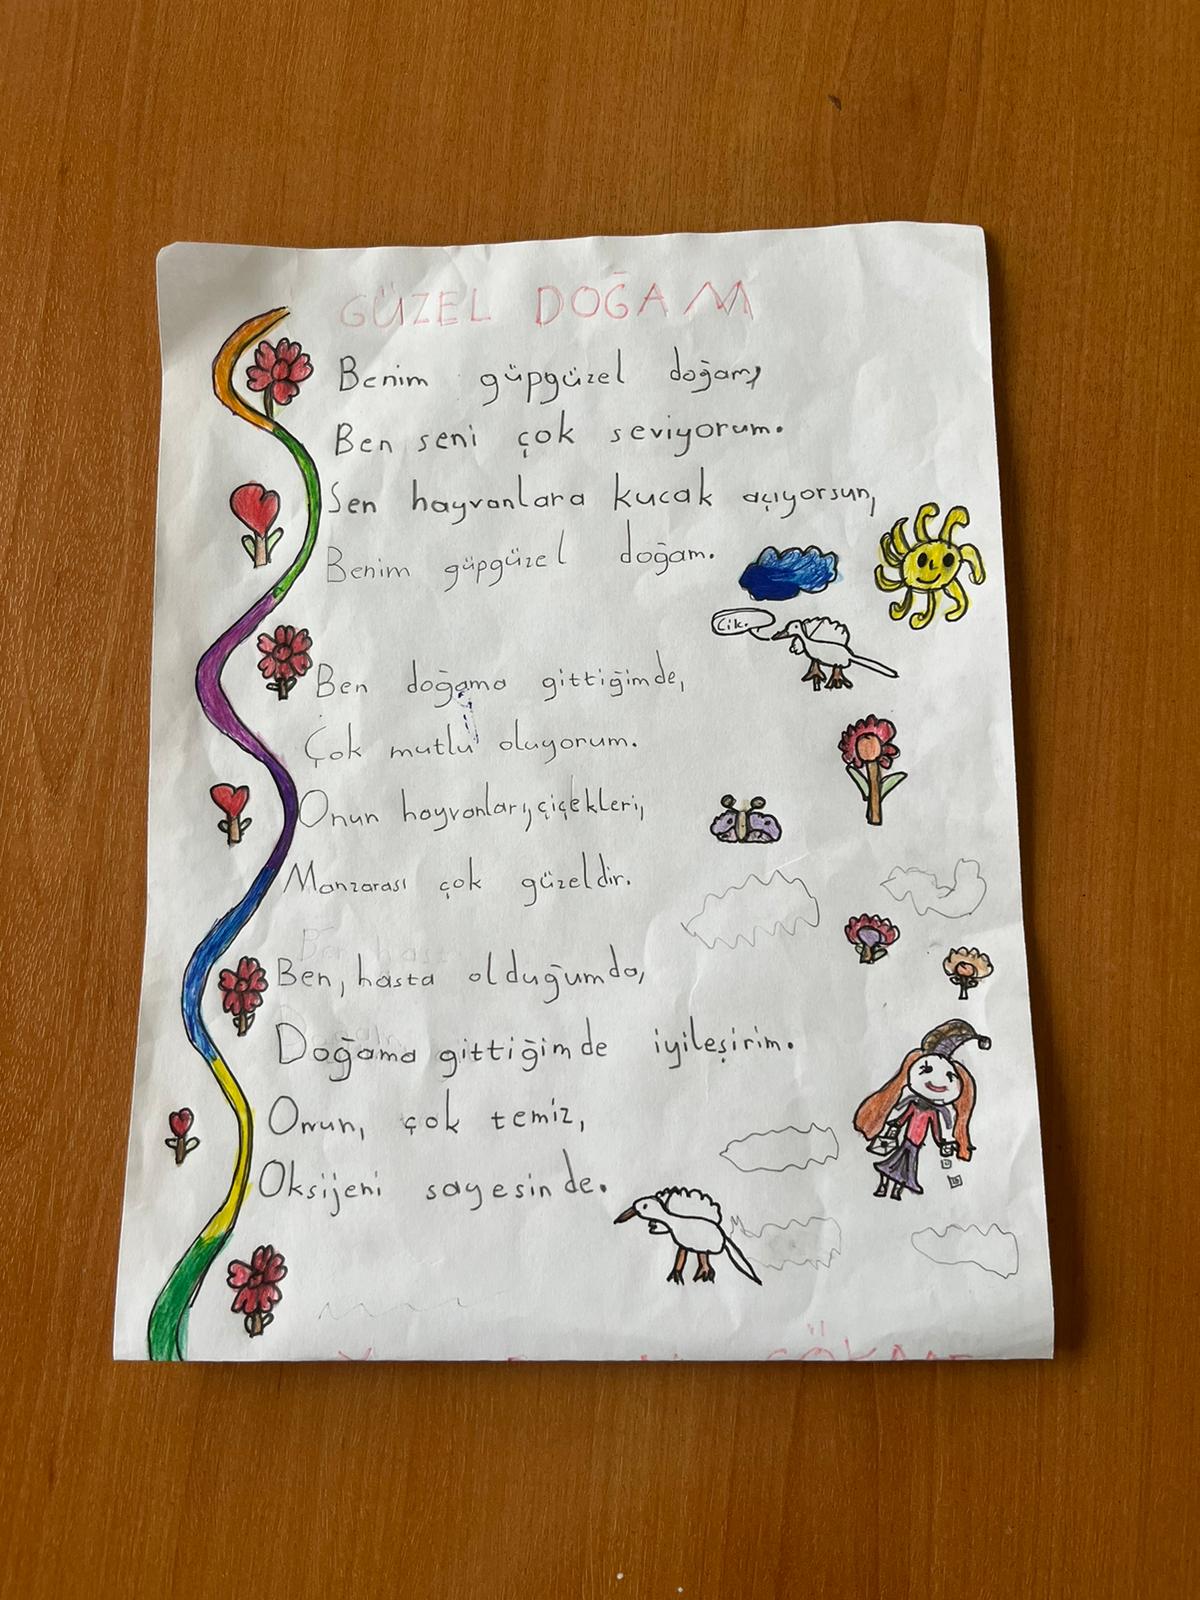 GÜZEL DOĞAM
Benim güpgüzel doğam,
Ben seni çok seviyorum.
Sen hayvanlara kucak açıyorsun,
Benim güpgüzel doğam.
Cik.
Ben doğama gittiğimde,
Çok mutlu oluyorum.
Onun hayvanları, çiçekleri,
Manzarası çok güzeldir.
Ben, hasta olduğumda,
Doğama gittiğimde iyileşirim.
Onun, çok temiz,
Oksijeni sayesinde.